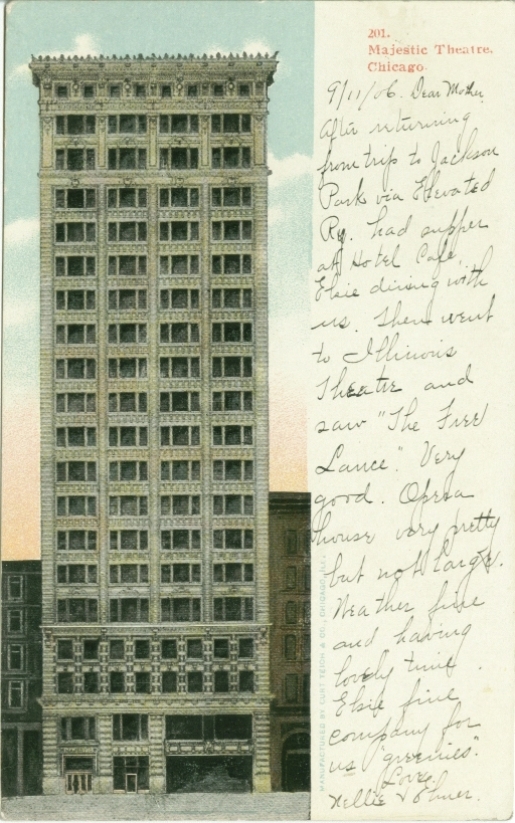 201.
Majestic Theatre.
Chicago.
9/11/06. Dear Mother,
After returning
from trip to Jackson
Park via Elevated
Ry. had supper
at Hotel Cafe,
Elsie dining with
us. Then went
to Illinois
Theatre and
saw "The Free
Lance". Very
good. Opera
house very pretty
but not large.
Weather fine
and having
lovely time.
Elsie fine
company for
us "greenies".
Love,
Nellie &
MANUFACTURED BY CURT TEICH & CO., CHICAGO, ILL.